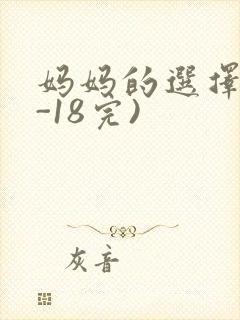 妈妈的選擇
-18完)
灰音